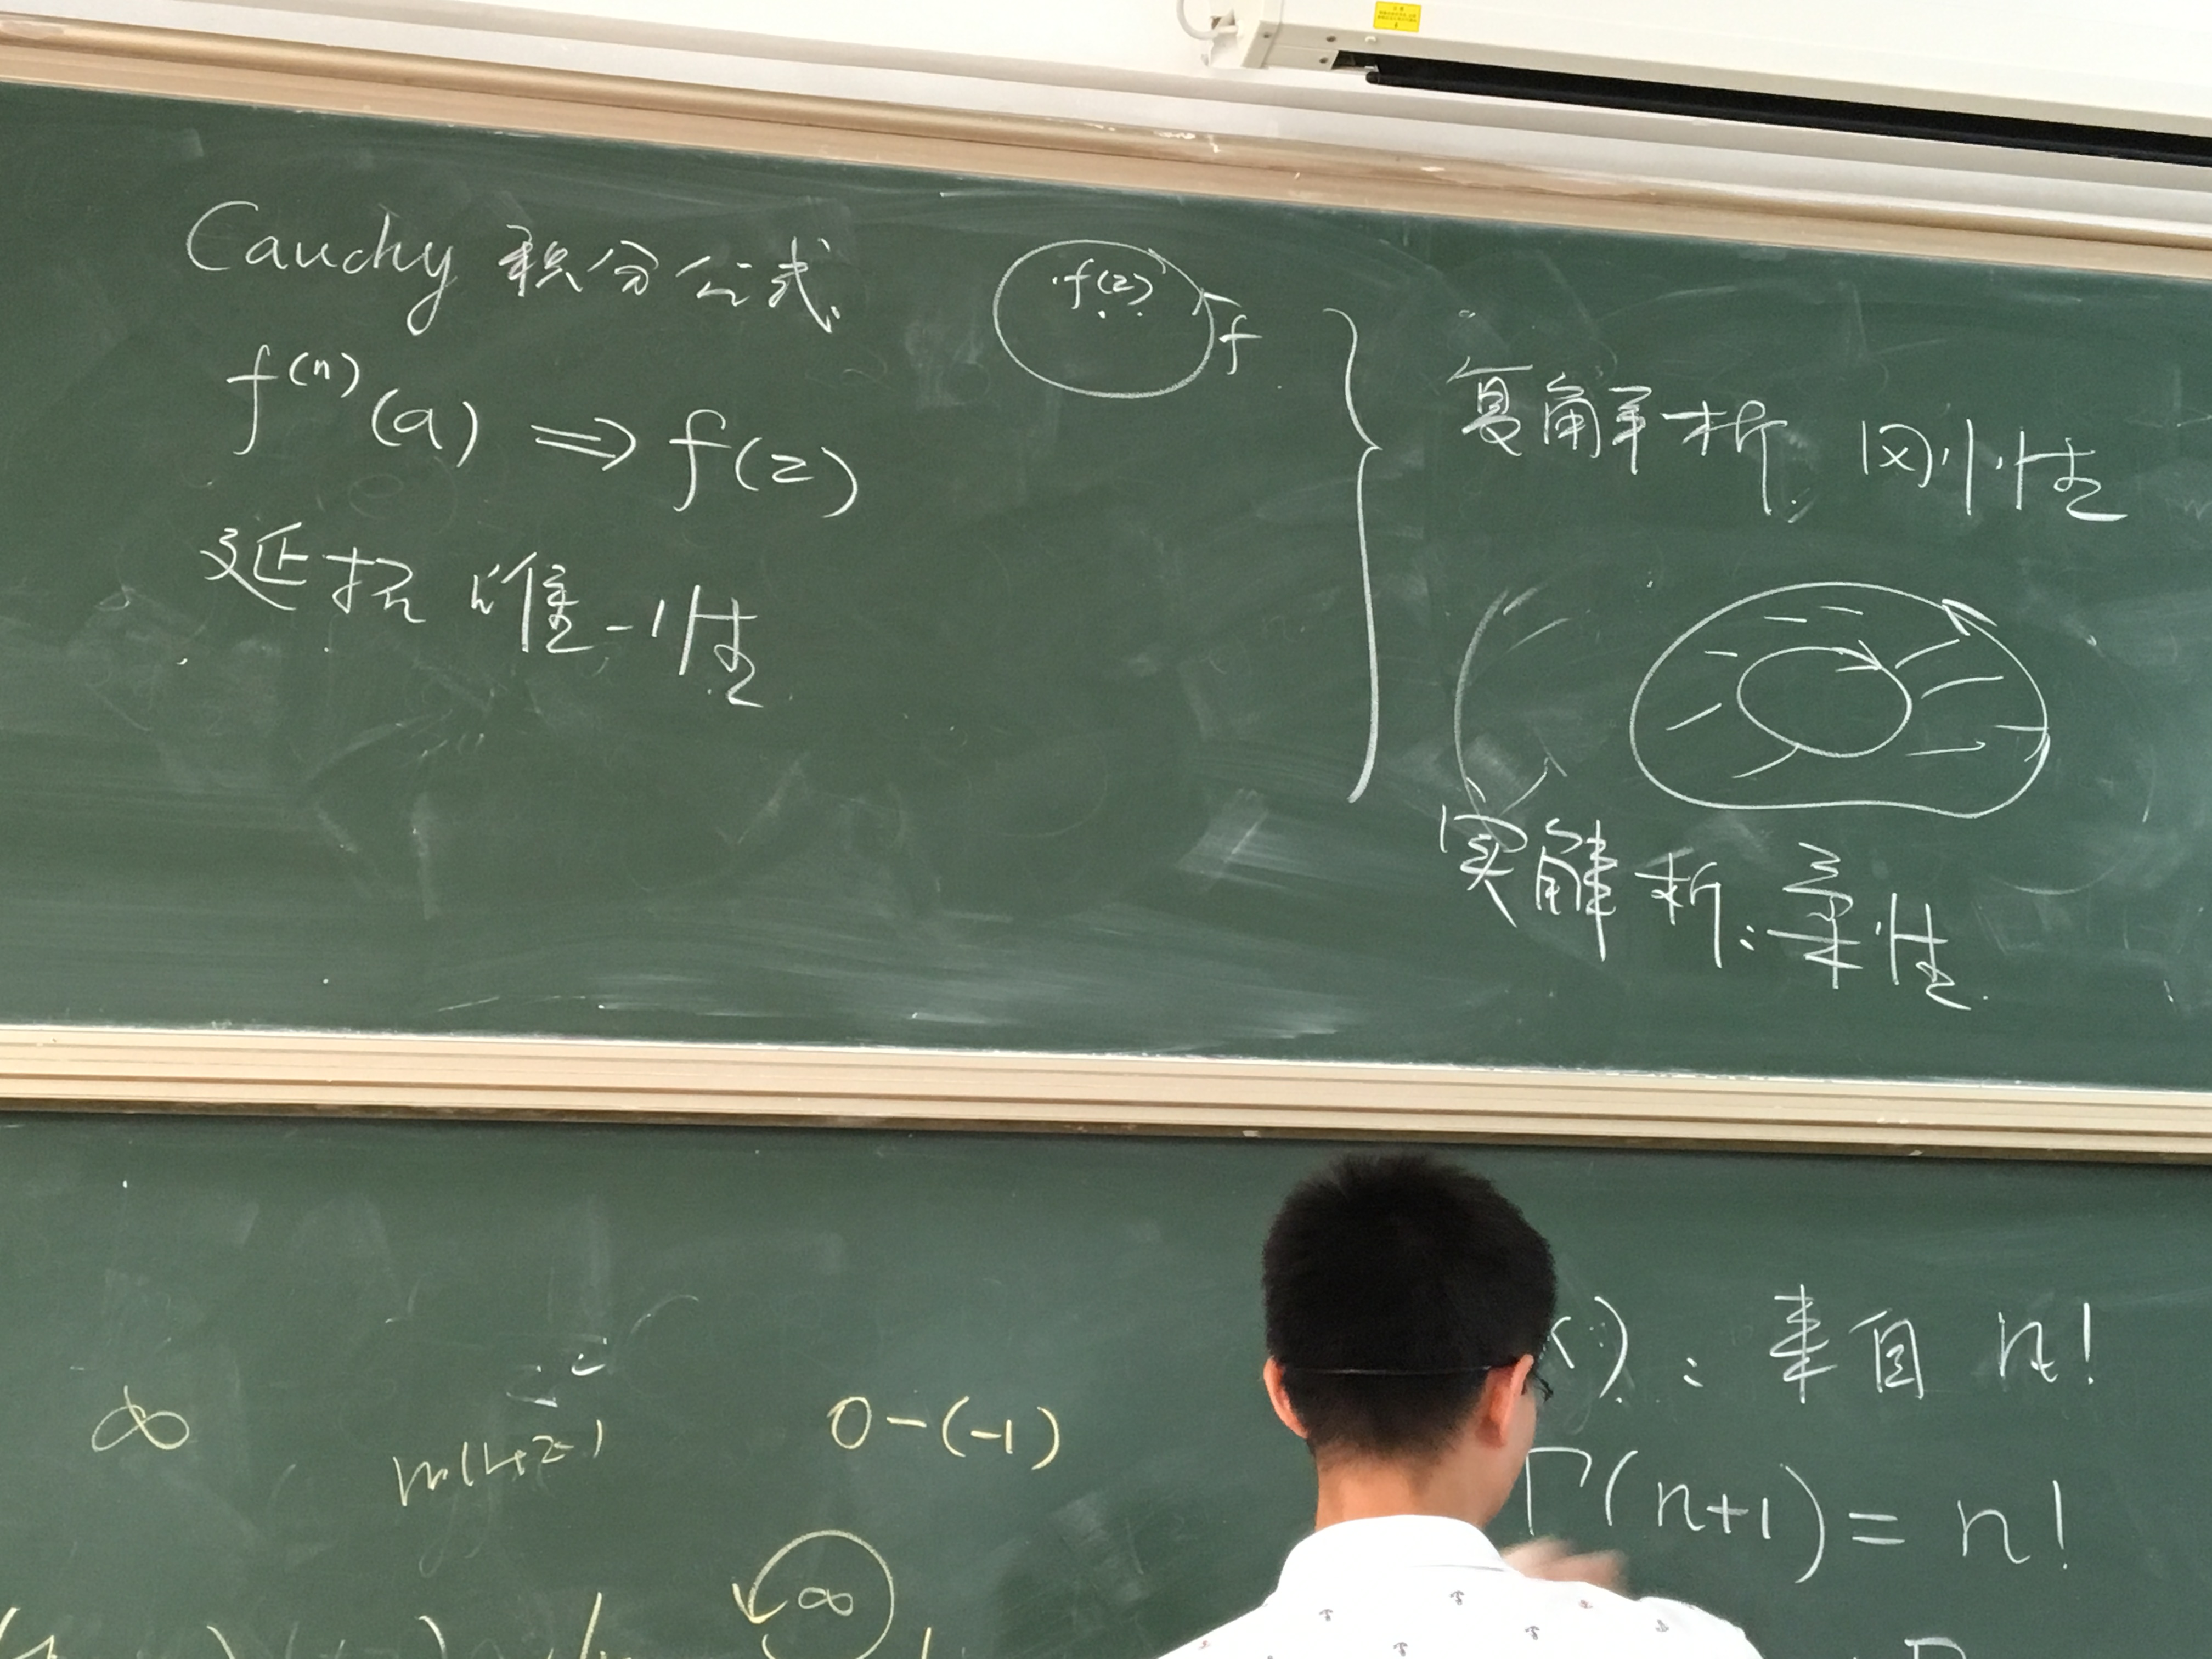 Cauchy 积分公式
f(z)
f
f⁽ⁿ⁾(a) ⟹ f(z)
延拓 唯一性
复解析 刚性
实解析: 柔性
∞
0-(-1)
∞
): 来自 n!
Γ(n+1) = n!